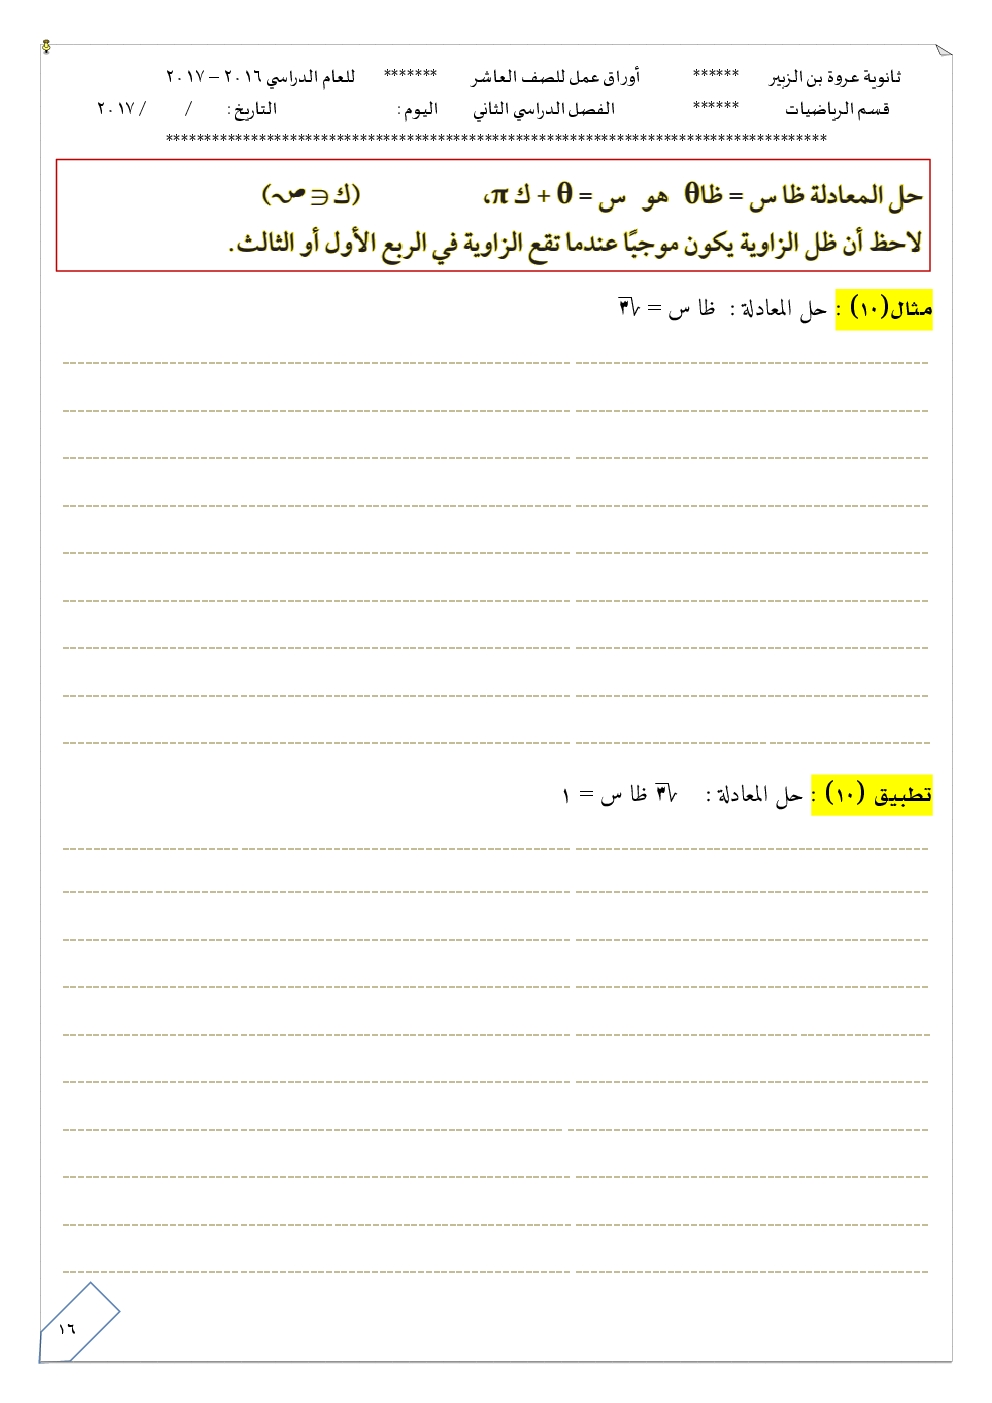 ثانوية عروة بن الزبير ****** أوراق عمل للصف العاشر ******* للعام الدراسي ٢٠١٦ – ٢٠١٧
قسم الرياضيات ****** الفصل الدراسي الثاني اليوم : التاريخ : / / ٢٠١٧
*************************************************************************************
حل المعادلة ظا س = ظاθ هو س = θ + ك π، (ك ∈ ص)
لاحظ أن ظل الزاوية يكون موجبًا عندما تقع الزاوية في الربع الأول أو الثالث.
مثال(١٠) : حل المعادلة : ظا س = √٣
تطبيق (١٠) : حل المعادلة : √٣ ظا س = ١
١٦